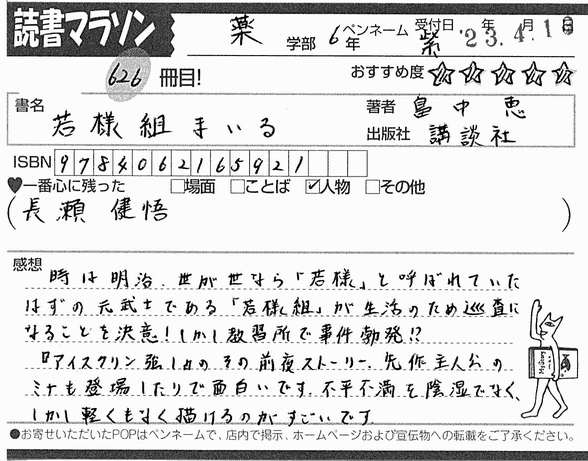 読書マラソン
薬 学部 6年 ペンネーム 紫 受付日 年 月 日 '23.4.10
626 冊目! おすすめ度 ☆☆☆☆☆
書名 若様組まいる
著者 畠中 恵
出版社 講談社
ISBN 9784062165921
♥一番心に残った □場面 □ことば ☑人物 □その他
(長瀬 健悟)
感想
時は明治、世が世なら「若様」と呼ばれていた
はずの元武士である「若様組」が生活のため巡査に
なることを決意!しかし教習所で事件勃発!?
『アイスクリン強し』のその前夜ストーリー。先作主人公の
ミナも登場したりで面白いです。不平不満を陰湿でなく、
しかし軽くもなく描けるのがすごいです。
Mystery
●お寄せいただいたPOPはペンネームで、店内で掲示、ホームページおよび宣伝物への転載をご了承ください。